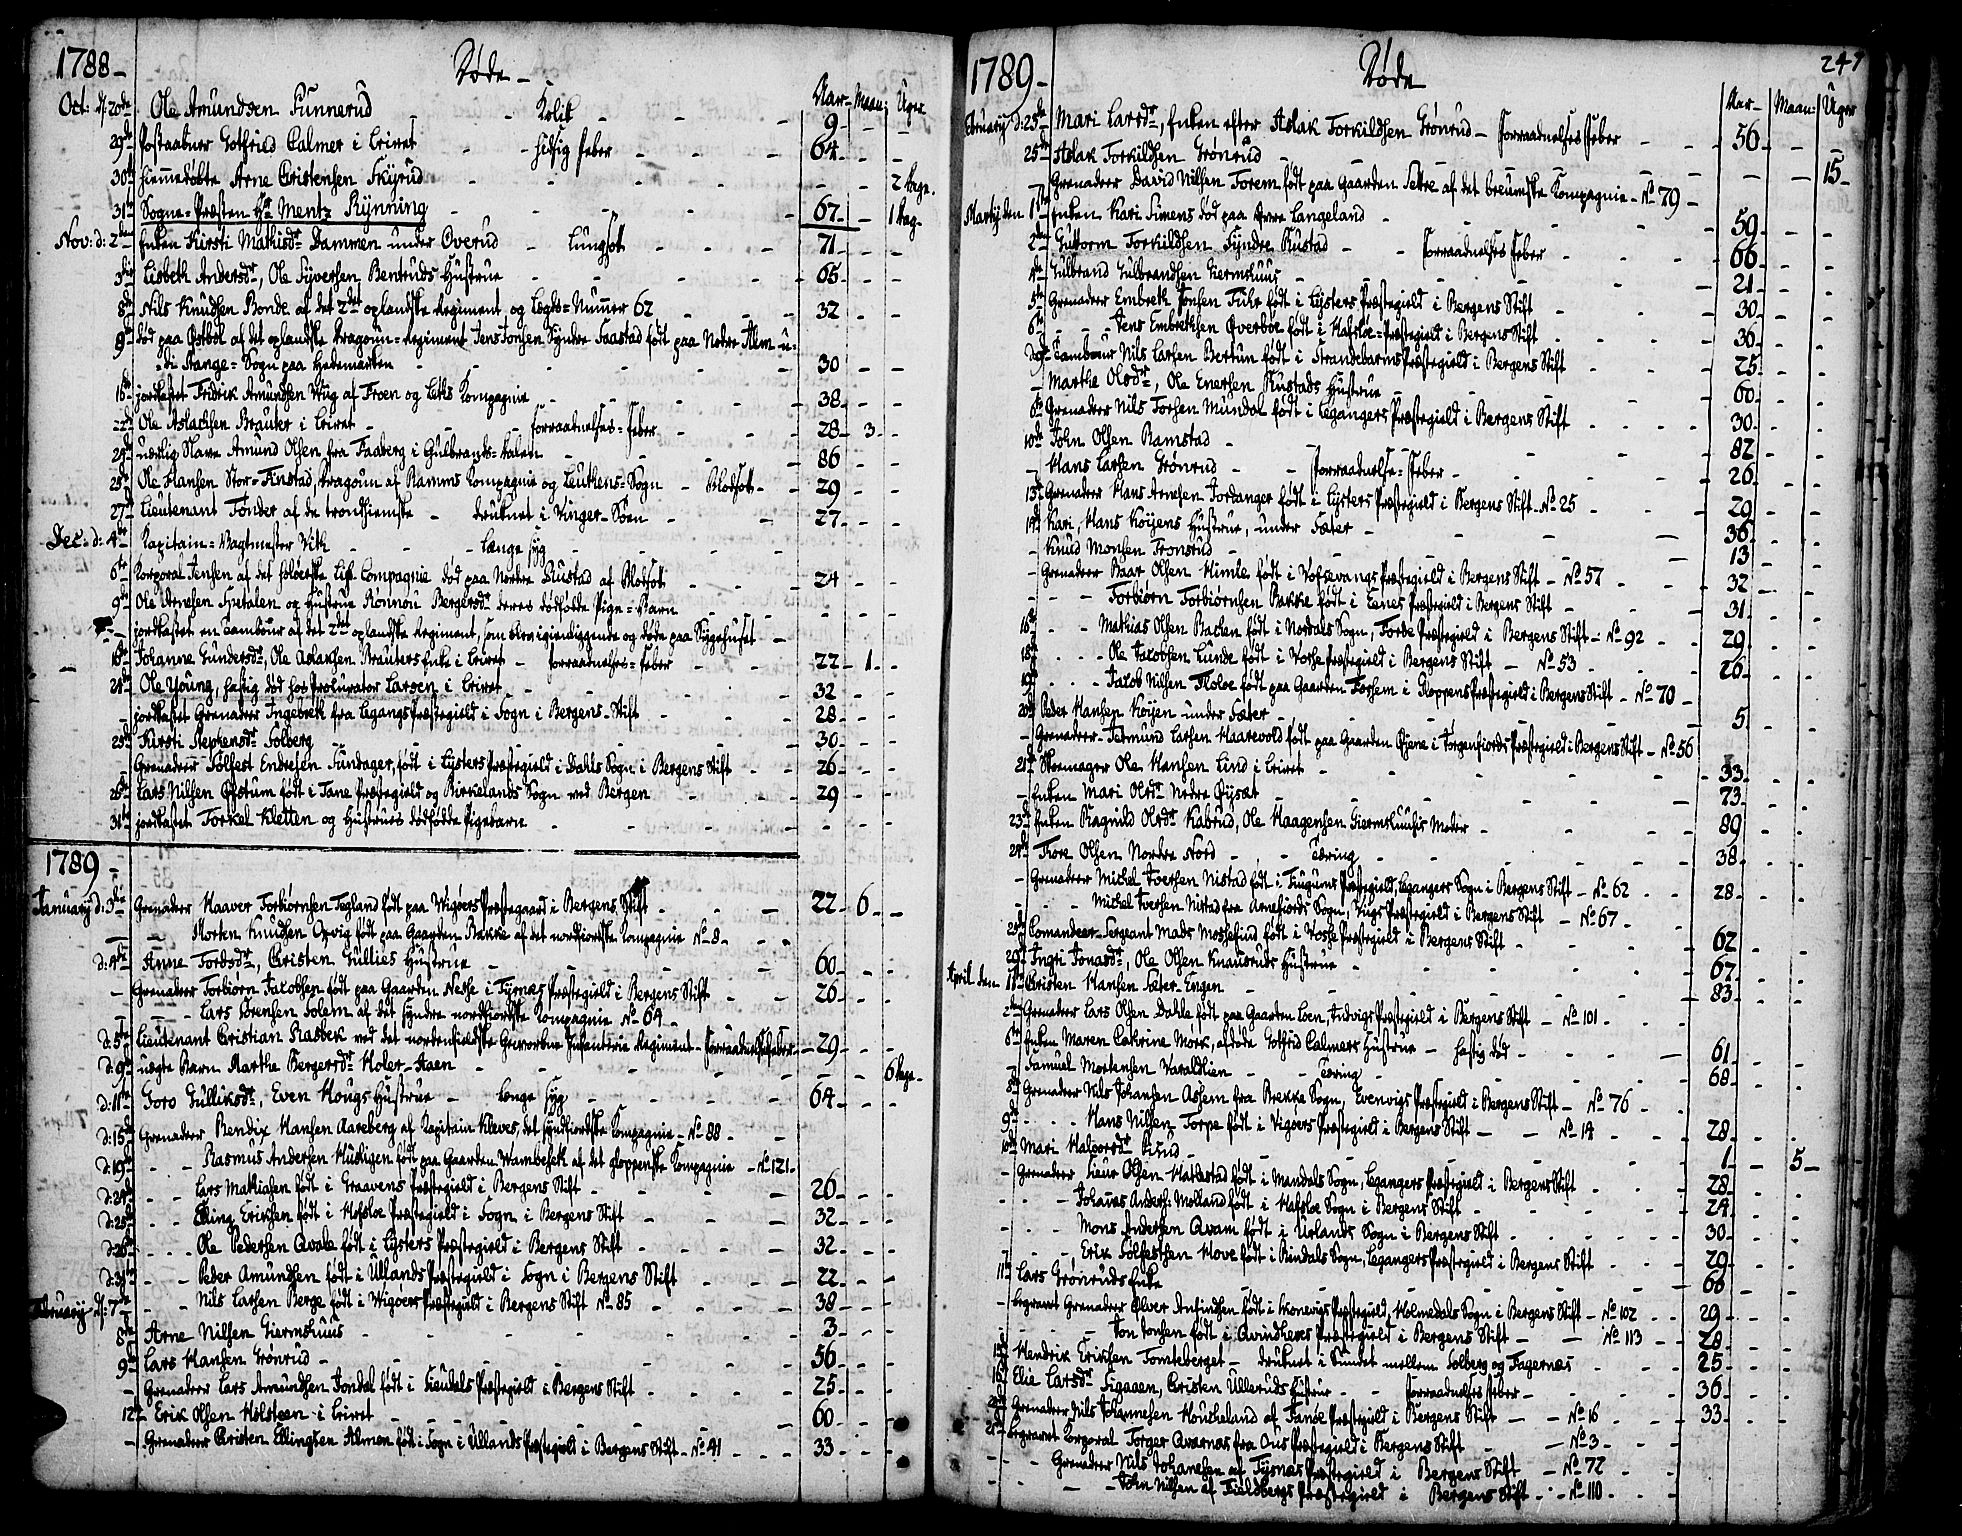 1788 - Døde -
Aar - Maan: Uger
Oct: d: 20de Ole Amundsen Funnerud - - Kolik - - 9 - - -
29de Postaabner Gotfried Calmer i Leiret - - hidsig Feber - - 64 - - -
30te hiemmedøbte Arne Cristensen Skyrud - - - 2 Dage.
31te Sogne-Præsten Hr. Mentz Rynning - 67 - - 1 Dag -
Nov: d: 2den Enken Kirsti Mathisdr Dammen under Overud - Lungesot - 71 - - -
3die Lisbeth Andersdr, Ole Syversen Bentruds Hustrue - 65 - - -
8de Nils Knudsen Bonde af det 2det oplandske Regiment og Lægds-Numer 62 - 32 - - -
9de død paa Østbøl af det oplandske Dragoun-Regiment Jens Jonsen Syndre Saastad født paa Nedre Alm u-
di Stange-Sogn paa Hedemarken - 30 - - -
16de jordkastet Fridrik Amundsen Wug af Froen og Leths Kompagnie - 38 - - -
22de Ole Aslachsen Brauter i Leiret - - Forraadnelses-Feber - 28 - 3 -
24de uærlig Slave Amund Olsen fra Faaberg i Gulbrands-dalen - 86 - - -
25de Ole Hansen Stor-Finstad, Dragoun af Ramms Kompagnie og Leuthens-Sogn - Blodsot - 29 - - -
27de Lieutenant Tønder af de trondhiemske - druknet i Vinger-Søen - 27 - - -
Dec: d: 4de Kapitain-Vagtmester Vith - - Længe syg - -
6te Korporal Jensen af det soløerske Liv-Compagnie død paa Nordre Rustad af Blodsot - 24 - - -
9de Ole Arnesen Hxetalen og Hustrue Rønnou Bergersdr deres dødfødte Pige-Barn - - -
- jordkastet en Tambour af det 2det oplandske Regiment, som igienliggende og døde paa Sygehuset -
16de Johanne Gundersdr, Ole Aslaksen Brauters Enke i Leiret - Forraadnelses-Feber - 22 - 1 - -
21de Ole Young, hastig død hos Prokurator Larsen i Leiret - 32 - - -
- jordkastet Grenadeer Ingebrek fra Legangs Præstegield i Sogn i Bergens-Stift - 28 - - -
23de Kirsti Stephensdr Solberg - 30 - - -
Grenadeer Solfest Endresen Fundager, født i Lysters Præstegield i Dahls Sogn i Bergens Stift - 26 - - -
26de Lars Nilsen Østum født i Fane Præstegield og Birkelands Sogn ved Bergen - 29 - - -
31te jordkastet Torkel Kletten og Hustrues dødfødde Pigebarn - - -
1789 -
January d: 3die Grenadeer Haaver Torbiørnsen Tegland født paa Wigøers Præstegaard i Bergens Stift - 22 - 6 - -
- Morten Knudsen Opvig født paa Gaarden Bakke af det nordfiordske Kompagnie No 8 - - -
d: 4de Anne Tordsdr, Cristen Gullies Hustrue - 60 - - -
- Grenadeer Torbiorn Jacobsen født paa Gaarden Nesse i Tysnæs Præstegield i Bergens Stift - 26 - - -
- - - Lars Sørensen Solem af det syndre nordfiordske Kompagnie No 64 -
d: 5te Lieutenant Cristian Rasbek ved det nordenfieldske Geworbne Infanterie Regiment - Forraadnelsesfeber - 29 - - -
d: 9de uægte Barn Marthe Bergersdr Holer-Aaen - - - 6 Dage.
d: 11te Goro Gulliksdr, Even Hougs Hustrue - Længe syg - 64 - - -
d: 15de Grenadeer Bendix Hansen Aareberg af Kapitain Kleves, det syndfiordske Kompagnie - No 88 -
d: 19de - - Rasmus Andersen Husligen født paa Gaarden Wambesek af det gloppenske Kompagnie - No 121 -
d: 24de - - Lars Mathiasen født i Graavens Præstegield i Bergens Stift - 26 - - -
d: 25de - - Elling Eriksen født i Hofsloe Præstegield i Sogn i Bergens Stift - 32 - - -
d: 26de - - - Ole Pedersen Qvale født i Lysters Præstegield i Bergens Stift - 32 - - -
d: 31te - - Peder Amundsen født i Ullands Præstegield i Sogn i Bergens Stift - 22 - - -
February d: 7de - - Nils Larsen Berge født i Wigøers Præstegield i Bergens Stift No 85 - 38 - - -
8de Arne Nilsen Giermshuus - 3 - - -
9de Lars Hansen Grønrud - 56 - - -
- Grenadeer Lars Amundsen Jondal født i Siendals Præstegield i Bergens Stift - 25 - - -
12te Erik Olsen Holsteen i Leiret - 60 - - -
- Grenadeer Cristen Ellingsen Almen født i Sogn i Ullands Præstegield i Bergens Stift - No 41 - 33 - - -
1789 - Døde 247
Aar - Maan: Uger
February d: 23de Mari Larsdr, Enken efter Aslak Torkildsen Grønrud - Forraadnelses Feber - 56 - - -
25de Aslak Torkildsen Grønrud - - - 15 -
Grenadeer David Nilsen Forem født paa Gaarden Settre af det breumske Kompagnie - No 79 -
Marty den 1ste Enken Kari Simens død paa Øvre Langeland - 59 - - -
2den Guttorm Torkildsen Syndre Rustad - Forraadnelses Feber - 66 - - -
4de Gulbrand Gulbrandsen Giermshuus - 21 - - -
5te Grenadeer Embreth Jonsen Fuhr født i Lysters Præstegield i Bergens Stift - 30 - - -
6te - - - Jens Embrethsen Øverbøe født i Hafsloe-Præstegield i Bergens Stift - 36 - - -
Tambour Nils Larsen Bertun født i Strandebarms Præstegield i Bergens Stift - 25 - - -
- Marthe Olsdr, Ole Enersen Rustads Hustrue - 60 - - -
8de Grenadeer Nils Torsen Mundal født i Legangers Præstegield i Bergens Stift - 30 - - -
10de John Olsen Ramstad - 82 - - -
- Hans Larsen Grønrud - - Forraadnelse-Feber - 26 - - -
13de Grenadeer Hans Arnesen Jordanger født i Lysters Præstegield i Bergens Stift - No 25 - 29 - - -
14de Kari, Hans Koyens Hustrue, under Sæter - 36 - - -
- Knud Monsen Fronsrud - 13 - - -
- Grenadeer Baar Olsen Himle født i Vossevangs Præstegield i Bergens Stift - No 57 - 32 - - -
- - - Torbiørn Torbiørnsen Bakke født i Eenes Præstegield i Bergens Stift - 31 - - -
16de - - Mathias Olsen Backen født i Nordals Sogn, Førde Præstegield i Bergens Stift - No 92 - 29 - - -
18de - - - Ole Jacobsen Lunde født i Vosse Præstegield i Bergens Stift - No 53 - 26 - - -
19de - - - Jakob Nilsen Floloe født paa Gaarden Fossem i Gloppens Præstegield i Bergens Stift - No 70 -
20de Peder Hansen Koyen under Sæter - 5 - - -
- Grenadeer Jetmund Larsen Haarevold født paa Gaarden Øyene i Jørgenfiords Præstegield i Bergens Stift - No 56
21de Skoemager Ole Hansen Lind i Leiret - 33 - - -
- Enken Mari Olsdr Nedre Øysæt - 73 - - -
23de Enken Ragnild Olsdr Kabrud, Ole Haagensen Giermshuuses Moder - 89 - - -
24de Thore Olsen Nordre Nord - Tæring - 38 - - -
- Grenadeer Michel Iversen Nistad født i Fingums Præstegield, Legangers Sogn i Bergens Stift - No 62 - 28 - - -
- - - Michel Iversen Nistad fra Arnefiords Sogn, Vigs Præstegield i Bergens Stift - No 67 -
25de Comandeer-Sergeant Mads Mossefind født i Vosse Præstegield i Bergens Stift - 62 - - -
29de Ingri Jonasdr, Ole Olsen Knausruds Hustrue - 67 - - -
April den 1ste Cristen Hansen Sæter-Engen - 83 - - -
2den Grenadeer Lars Olsen Dahle født paa Gaarden Loen, Indvigs Præstegield i Bergens Stift - No 101 - -
6te Enken Maren Cathrine Mørk, afdøde Gotfrid Calmers Hustrue - hastig død - 61 - - -
- Samuel Mortensen Varaldlien - Tæring - 68 - - -
8de Grenadeer Nils Johansen Assem fra Brekke Sogn, Evenvigs Præstegield i Bergens Stift - No 76 -
9de - - - Hans Nilsen Torpe født i Vigøers Præstegield i Bergens Stift - No 14 - 28 - - -
10de Mari Halvorsdr Lirud - 1 - - 5 -
- Grenadeer Sieur Olsen Hattestad født i Mandals Sogn, Legangers Præstegield i Bergens Stift - 28 - - -
- - - Johanes Anders: Molland født i Hafsloe Sogn i Bergens Stift - 24 - - -
- - - Mons Andersen Qvam født i Urlands Sogn i Bergens Stift - 30 - - -
- - - Erik Sølfestsen Hove født i Rindals Sogn, Legangers Præstegield i Bergens Stift - 29 - - -
11te Lars Grønruds Enke 68 - - -
- begravet Grenadeer Ølver Anfindsen født i Skonevigs Præstegield, Holmedals Sogn i Bergens Stift - No 102 - 29 - - -
- - - Jon Jonsen født i Qvindherres Præstegield i Bergens Stift - No 113 - 28 - - -
15de Hendrik Eriksen Tomteberget - druknet i Sundet mellem Solberg og Fagernæs - 25 - - -
16de Elie Larsdr Sigaaen, Cristen Ulleruds Hustrue - Forraadnelses Feber - 36 - - -
20de Grenadeer Nils Johannesen Houkeland af Fanøe Præstegield i Bergens Stift - No 16 - 33 - - -
21de begravet Korporal Torger Qvarnæs fra Ous Præstegield i Bergens Stift - No 3 - - -
- - - Grenadeer Nils Johanesen af Tysnæs Præstegield i Bergens Stift - No 72 - - -
- - - John Nilsen af Fieldbergs Præstegield i Bergens Stift - No 110 - - -